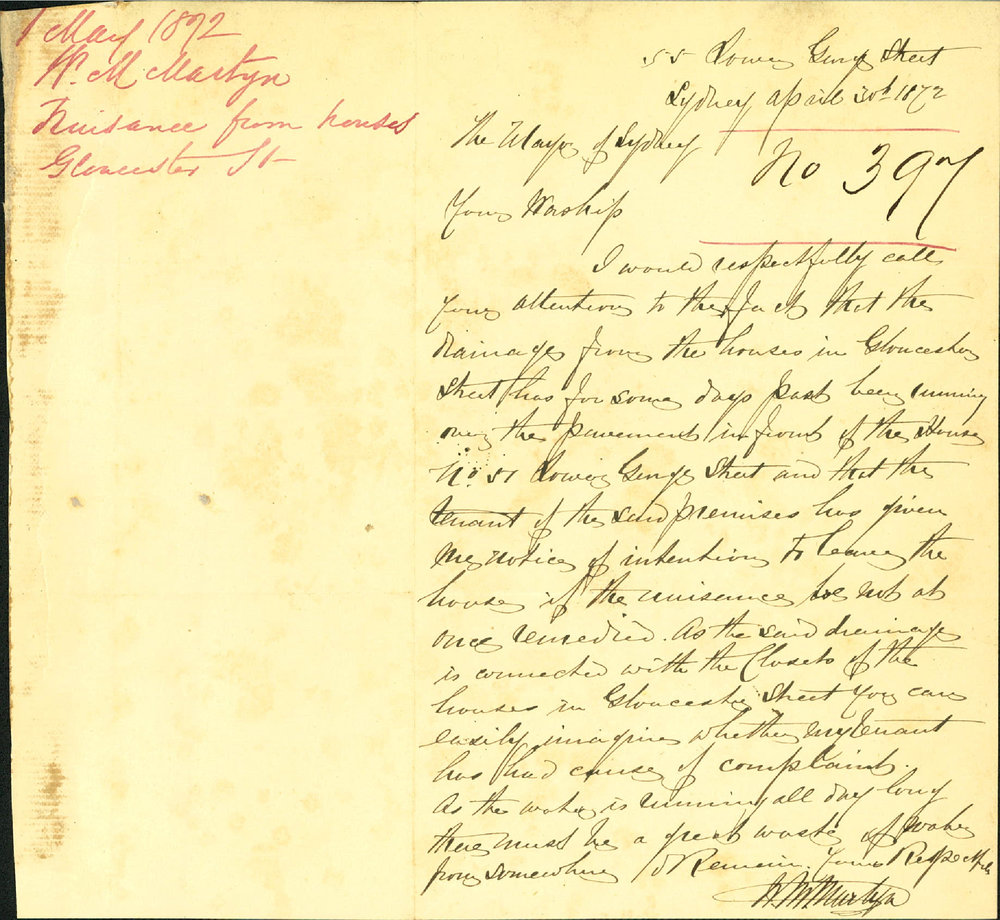 1 May 1872
W. M Martyn
Nuisance from houses
Gloucester St
55 Lower George Street
Sydney April 30th 1872
The Mayor of Sydney
No 397
Your Worship
I would respectfully call
your attention to the fact that the
drainage from the houses in Gloucester
Street has for some days past been running
over the pavement in front of the House
No. 51 Lower George Street and that the
tenant of the said premises has given
me notice of intention to leave the
house if the nuisance be not at
once remedied. As the said drainage
is connected with the Closets of the
houses in Gloucester Street you can
easily imagine whether my tenant
has had cause of complaint.
As the water is running all day long
there must be a great waste of water
from somewhere I Remain Yours Respectfully
W M Martyn